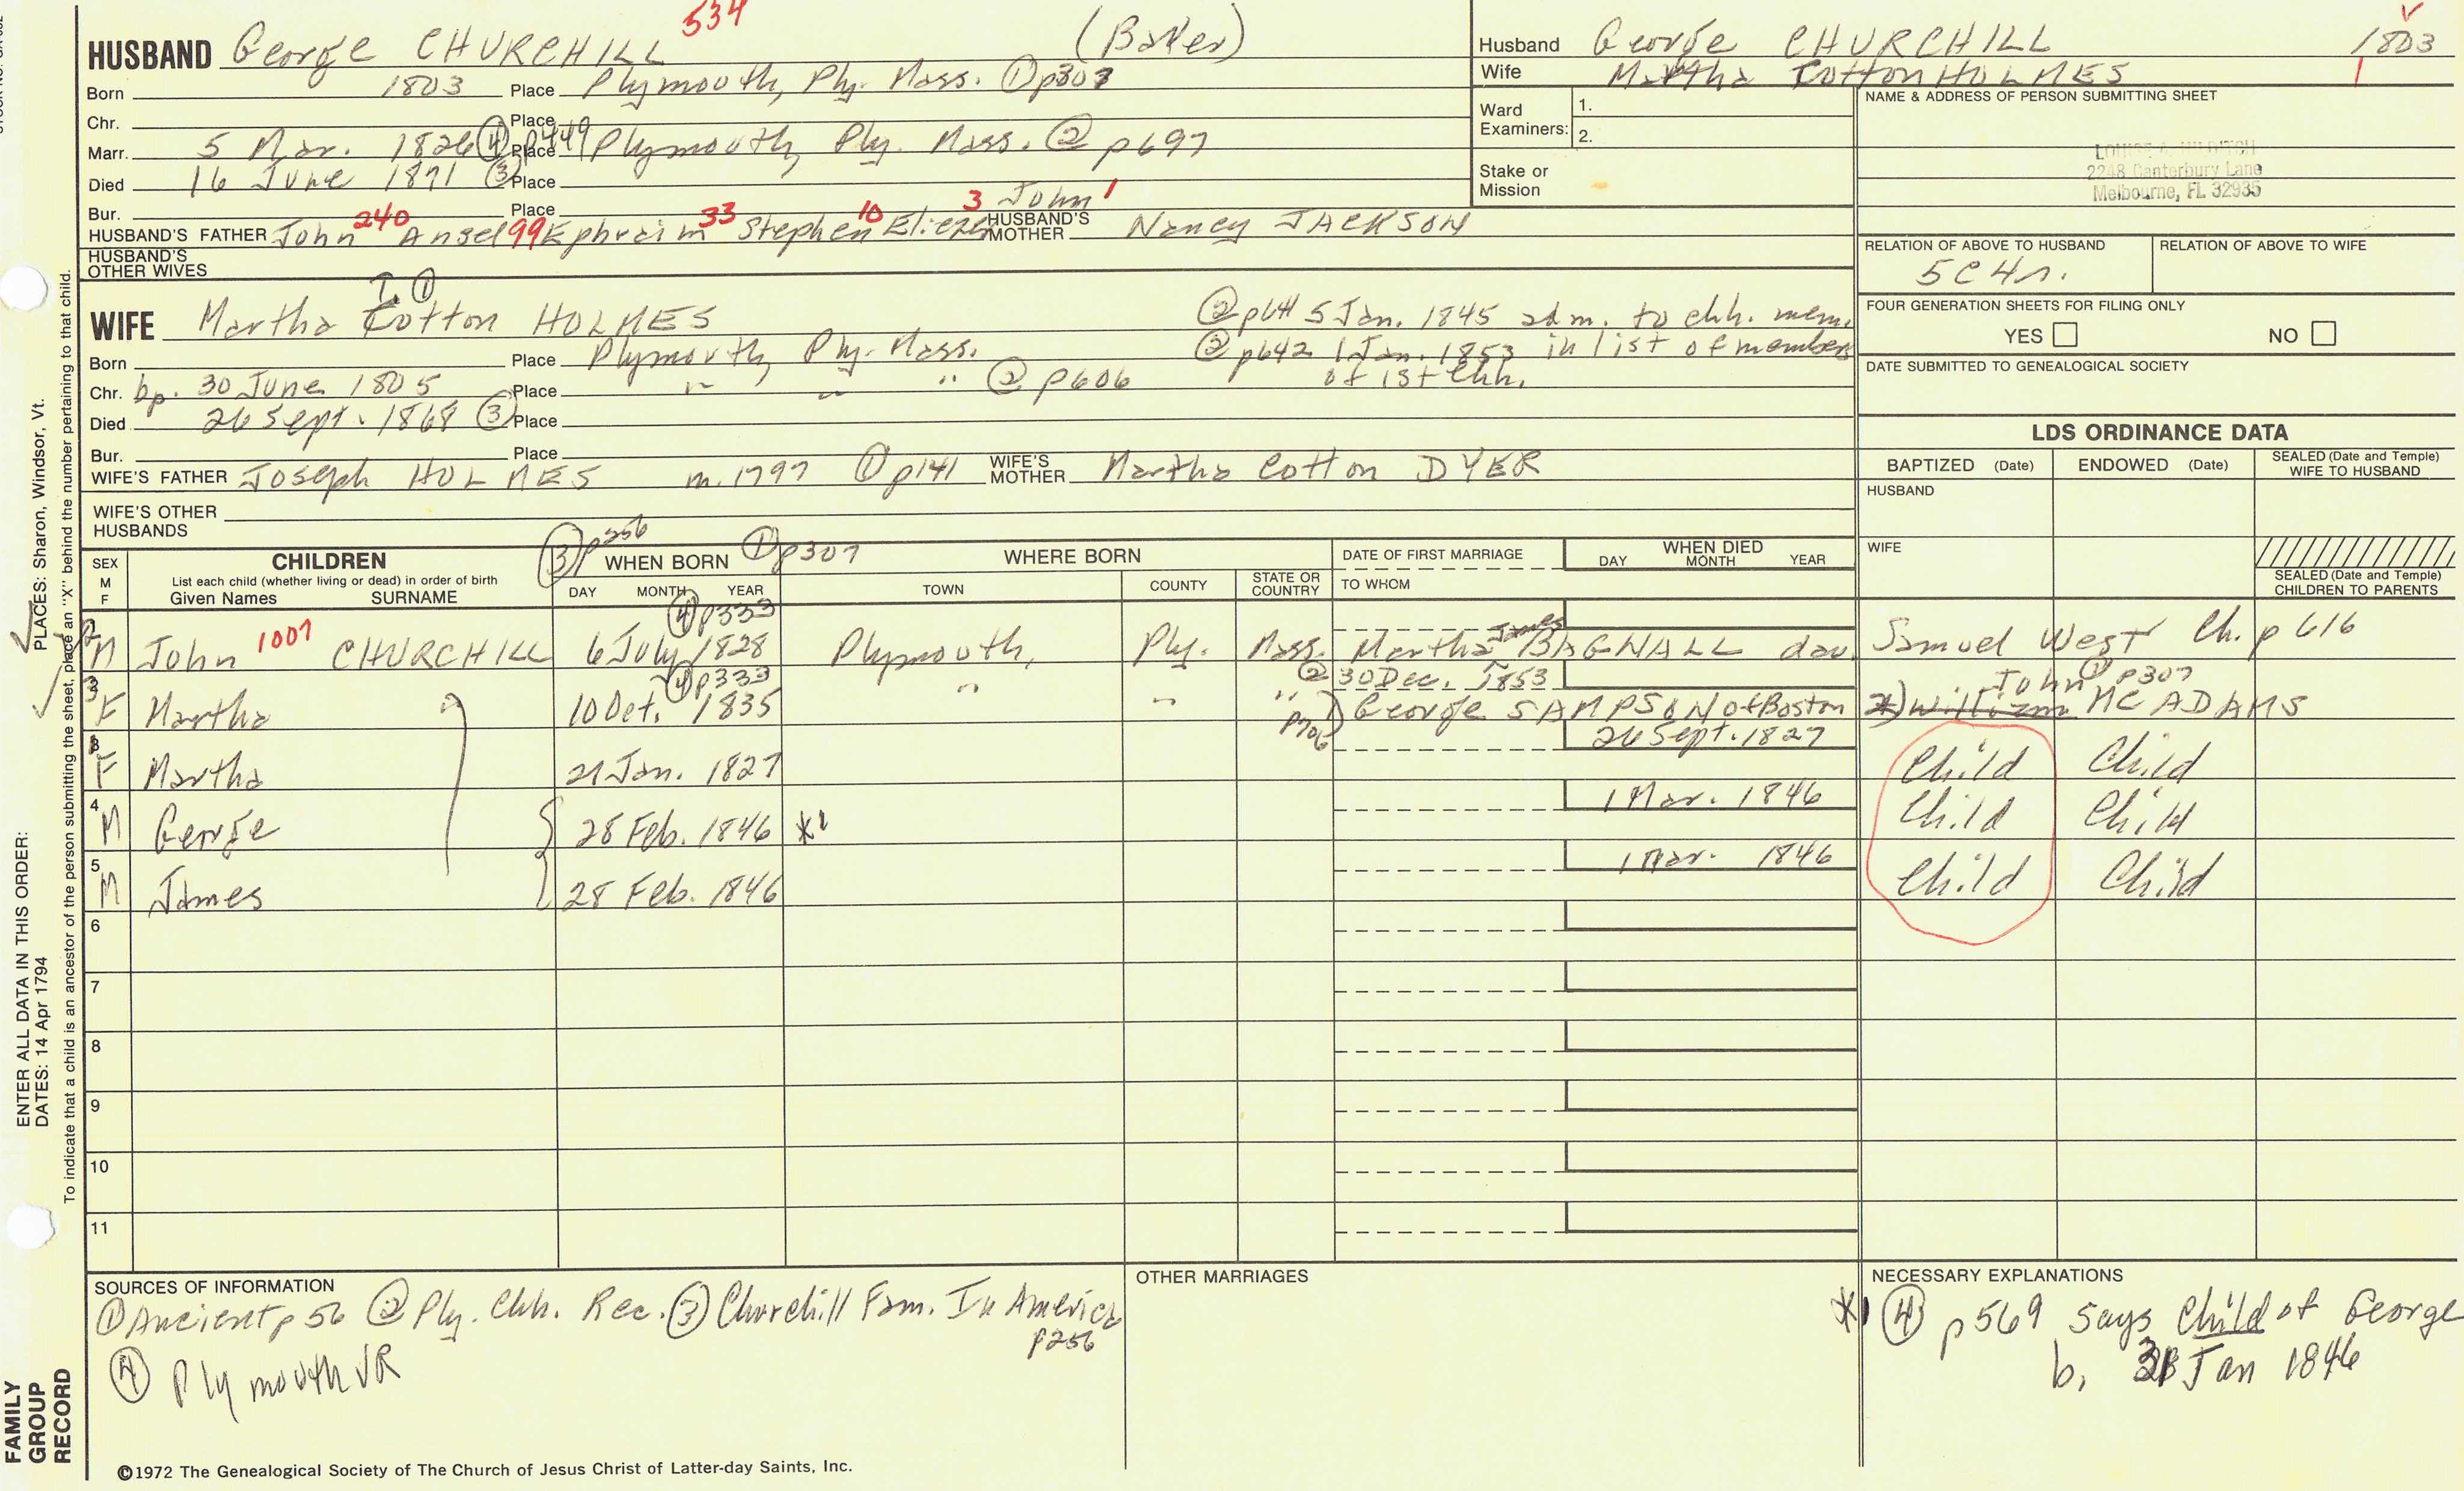 534
HUSBAND George CHURCHILL (Baker)
Born 1803 Place Plymouth, Ply. Mass. ① p303
Chr. Place
Marr. 5 Mar. 1826 ④ p449 Place Plymouth, Ply. Mass. ② p697
Died 16 June 1871 ③ Place
Bur. Place
HUSBAND'S FATHER John 240 Ansel 99 Ephraim 33 Stephen 10 Eliezer 3 John 1 HUSBAND'S MOTHER Nancy JACKSON
HUSBAND'S OTHER WIVES
Husband George CHURCHILL 1803
Wife Martha Cotton HOLMES 1
Ward Examiners: 1.
2.
Stake or Mission
NAME & ADDRESS OF PERSON SUBMITTING SHEET
2248 Canterbury Lane
Melbourne, FL 32935
RELATION OF ABOVE TO HUSBAND RELATION OF ABOVE TO WIFE
5C4r.
FOUR GENERATION SHEETS FOR FILING ONLY
YES NO
DATE SUBMITTED TO GENEALOGICAL SOCIETY
T. ①
WIFE Martha Cotton HOLMES
② p641 5 Jan. 1845 adm. to chh. mem.
Born Place Plymouth, Ply. Mass.
② p642 1 Jan. 1853 in list of members of 1st Chh.
Chr. bp. 30 June 1805 Place " " " ② p606
Died 26 Sept. 1868 ③ Place
Bur. Place
WIFE'S FATHER Joseph HOLMES m. 1797 ① p141 WIFE'S MOTHER Martha Cotton DYER
WIFE'S OTHER HUSBANDS
LDS ORDINANCE DATA
BAPTIZED (Date) ENDOWED (Date) SEALED (Date and Temple) WIFE TO HUSBAND
HUSBAND
WIFE
SEALED (Date and Temple) CHILDREN TO PARENTS
③ p256 ① p307
SEX M F
CHILDREN
List each child (whether living or dead) in order of birth
Given Names SURNAME
WHEN BORN
DAY MONTH YEAR
WHERE BORN
TOWN COUNTY STATE OR COUNTRY
DATE OF FIRST MARRIAGE
TO WHOM
WHEN DIED
DAY MONTH YEAR
④ p333
2 M John 1007 CHURCHILL 6 July 1828 Plymouth, Ply. Mass. Martha James BAGNALL dau. Samuel West Ch. p616
④ p333 ② 30 Dec. 1853 John ① p307
3 F Martha 10 Oct. 1835 " " " p706 1) George SAMPSON of Boston 2) William MC ADAMS
26 Sept. 1827
1 F Martha 21 Jan. 1827 Child Child
1 Mar. 1846
4 M George 28 Feb. 1846 *1 Child Child
1 Mar. 1846
5 M James 28 Feb. 1846 Child Child
6
7
8
9
10
11
SOURCES OF INFORMATION
① Ancient p56 ② Ply. Chh. Rec. ③ Churchill Fam. In America p256
④ Plymouth VR
OTHER MARRIAGES
NECESSARY EXPLANATIONS
*1 ④ p569 says Child of George
b. 31 Jan 1846
©1972 The Genealogical Society of The Church of Jesus Christ of Latter-day Saints, Inc.
FAMILY GROUP RECORD
ENTER ALL DATA IN THIS ORDER:
DATES: 14 Apr 1794
PLACES: Sharon, Windsor, Vt.
To indicate that a child is an ancestor of the person submitting the sheet, place an "X" behind the number pertaining to that child.